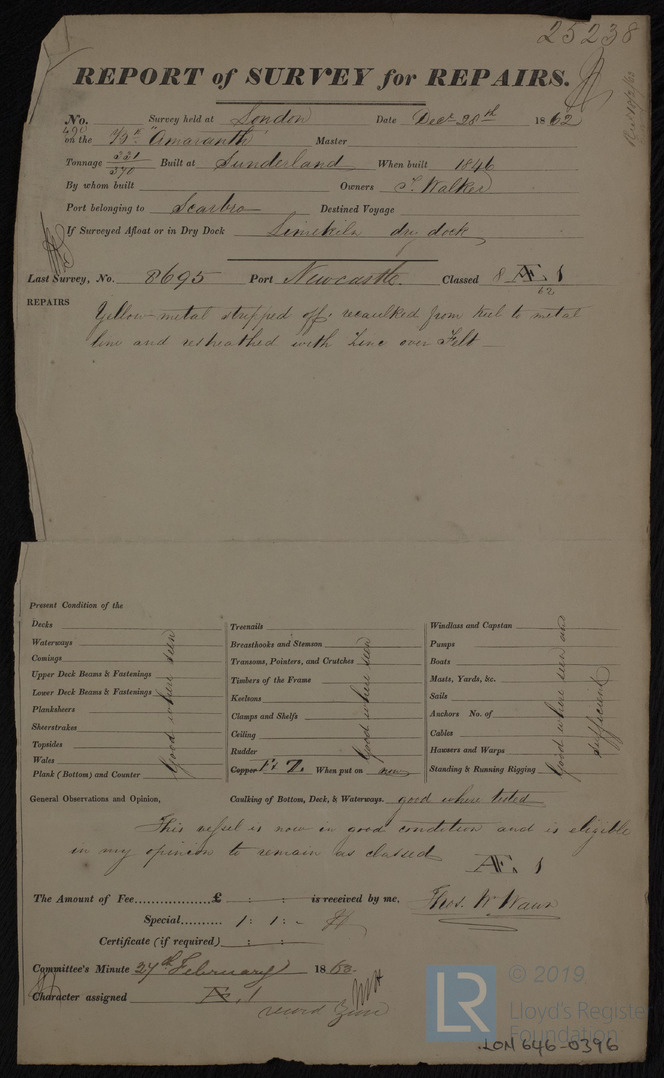 25238
REPORT of SURVEY for REPAIRS.
No. Survey held at London Date Decr 28th 1862
490 on the "Amaranth" Master
Tonnage 331/370 Built at Sunderland When built 1846
By whom built Owners T. Walker
Port belonging to Scarbro Destined Voyage
If Surveyed Afloat or in Dry Dock Limekiln dry dock
Last Survey, No. 8695 Port Newcastle. Classed 8 Æ. 1
62
REPAIRS Yellow-metal stripped off, recaulked from keel to metal
line and resheathed with Zinc over Felt
Present Condition of the
Decks
Waterways
Comings
Upper Deck Beams & Fastenings
Lower Deck Beams & Fastenings
Planksheers
Sheerstrakes
Topsides
Wales
Plank (Bottom) and Counter
Good where seen
Treenails
Breasthooks and Stemson
Transoms, Pointers, and Crutches
Timbers of the Frame
Keelsons
Clamps and Shelfs
Ceiling
Rudder
Copper F & Z. When put on new
Good where seen
Windlass and Capstan
Pumps
Boats
Masts, Yards, &c.
Sails
Anchors No. of
Cables
Hawsers and Warps
Standing & Running Rigging
Good where seen and
sufficient
General Observations and Opinion, Caulking of Bottom, Deck, & Waterways. good where tested
This vessel is now in good condition and is eligible
in my opinion to remain as classed Æ. 1
The Amount of Fee..................£ : : is received by me,
Thos. W. Wawn
Special.......... 1 : 1 : -
Certificate (if required) : :
Committee's Minute 27th February 1863
Character assigned Æ. 1
record Zinc
LR
© 2019
Lloyd's Register
Foundation
LON 646-0396